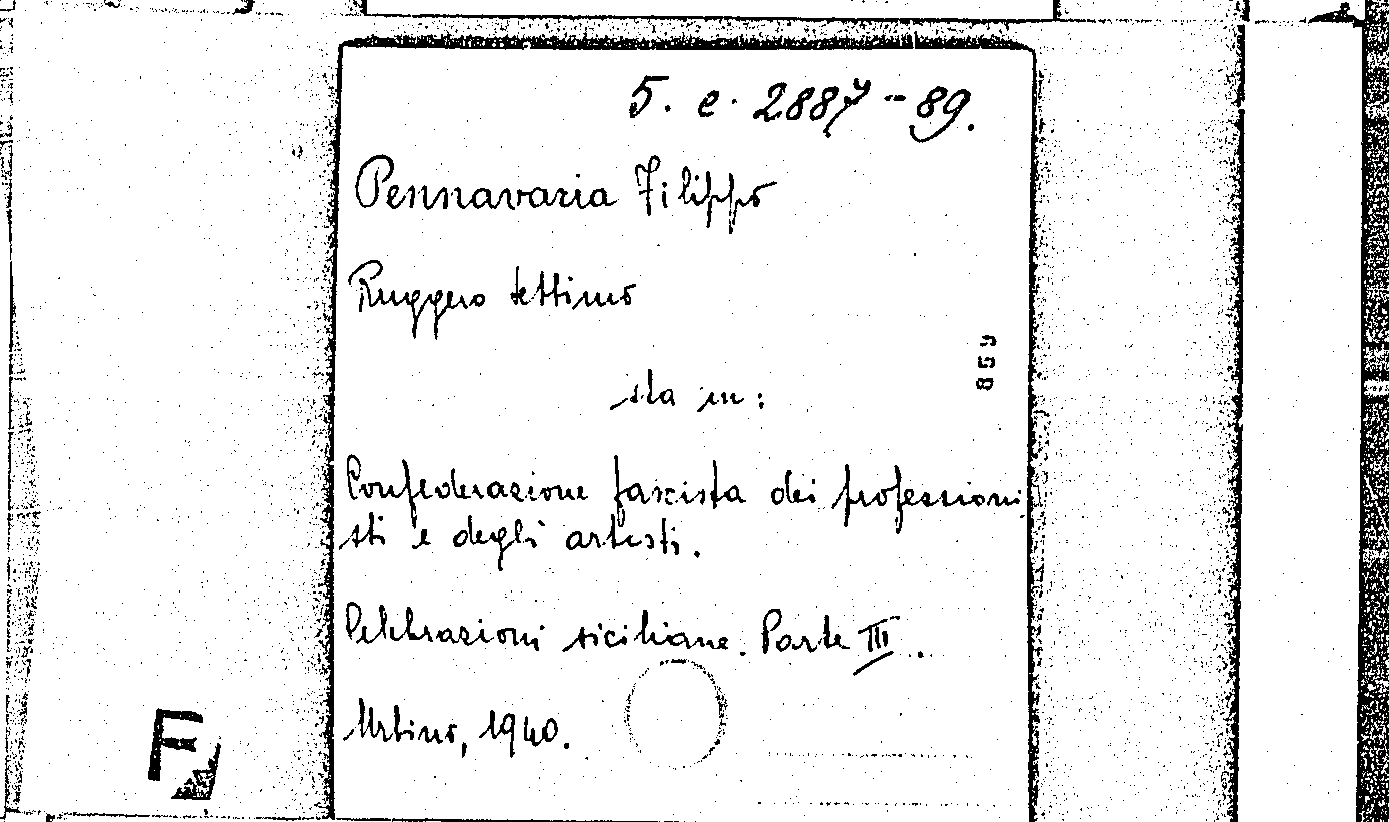 5. e. 2887-89.
Pennavaria Filippo
Ruggero Settimo
859
sta in:
Confederazione fascista dei professioni
sti e degli artisti.
Celebrazioni siciliane. Parte III.
Urbino, 1940.
F